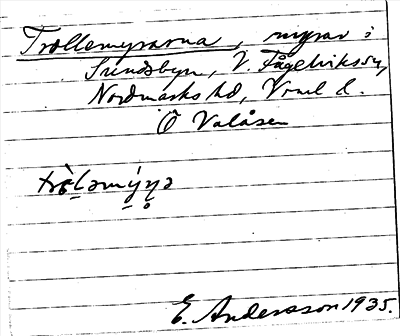 Trollemyrarna, myrar i
Sundsbyn, V. Fågelviks sn,
Nordmarks hd, Vrml l.
Ö Valåsen
trò̀L̠əmý̠ṇə
E. Andersson 1935.